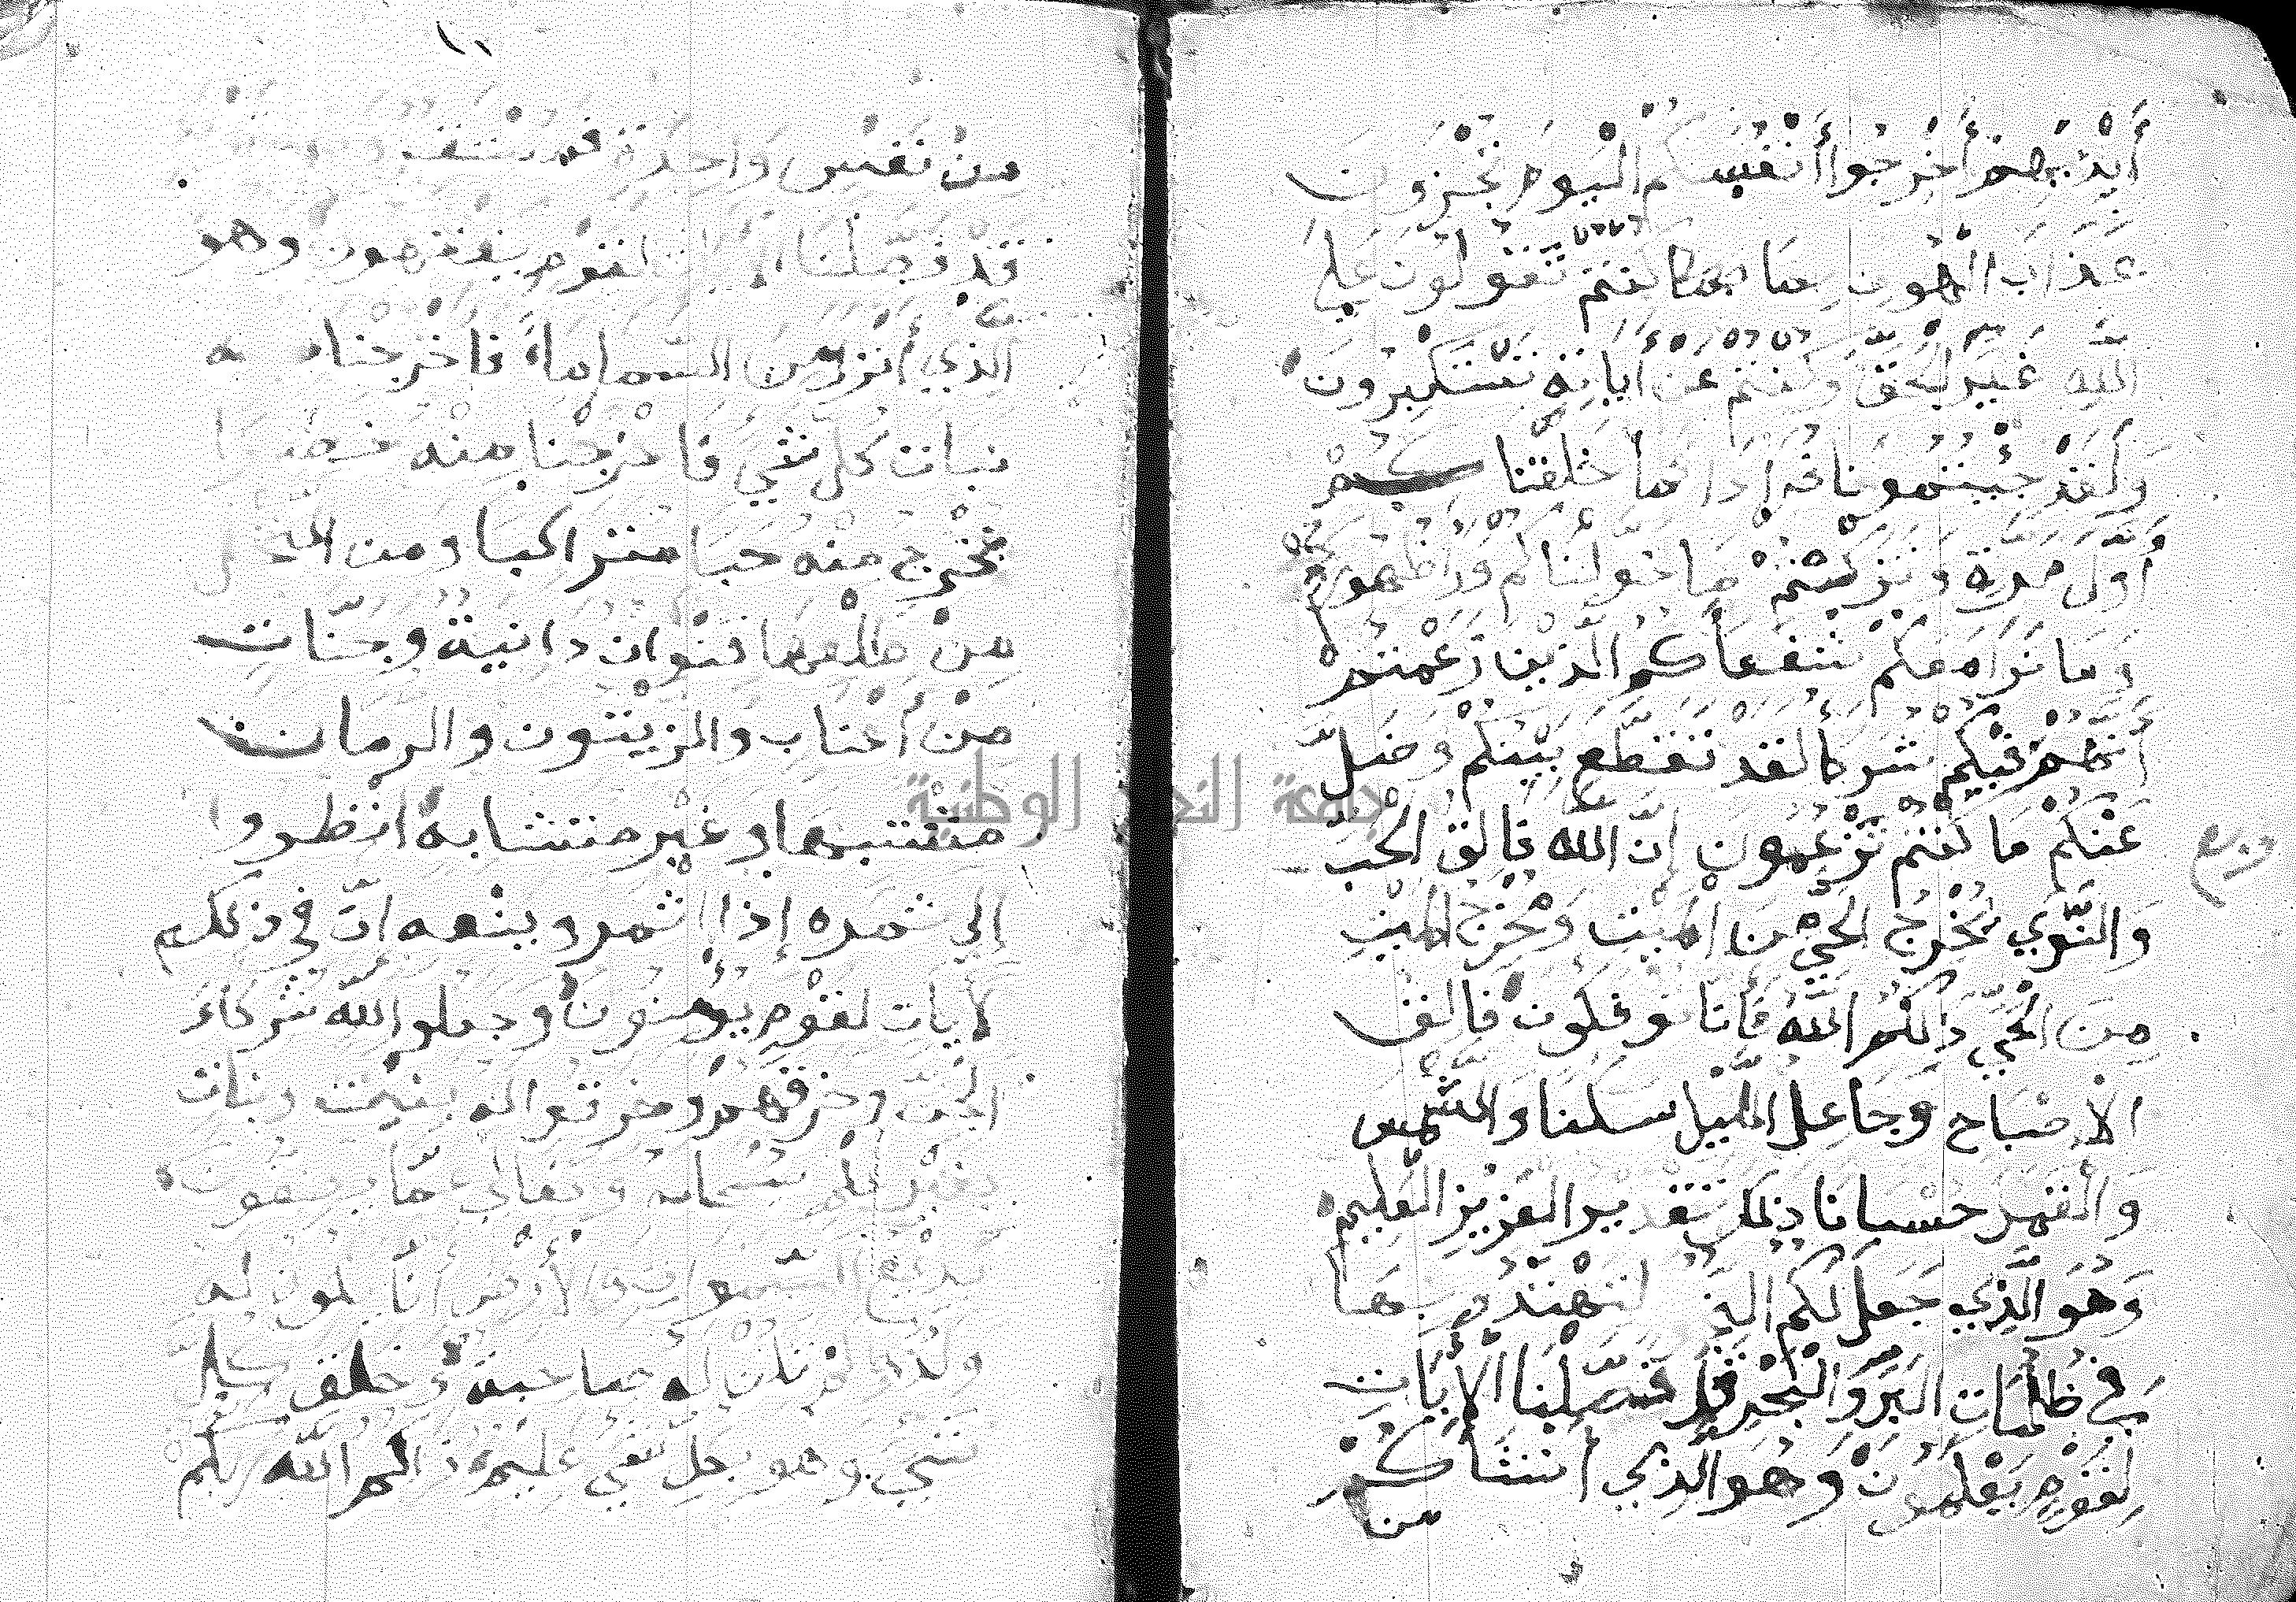 أَيْدِيهِمْ أَخْرِجُوا أَنْفُسَكُمْ الْيَوْمَ تُجْزَوْنَ
عَذَابَ الْهُونِ بِمَا كُنْتُمْ تَقُولُونَ عَلَى
اللَّهِ غَيْرَ الْحَقِّ وَكُنْتُمْ عَنْ أَيَاتِهِ تَسْتَكْبِرُونَ
وَلَقَدْ جِئْتُمُونَا فُرَادَا كَمَا خَلَقْنَاكُمْ
أَوَّلَ مَرَّةٍ وَتَرَكْتُمْ مَا خَوَّلْنَاكُمْ وَرَاءَ ظُهُورِكُمْ
وَمَا نَرَا مَعَكُمْ شُفَعَاءَكُمُ الَّذِينَ زَعَمْتُمْ
أَنَّهُمْ فِيكُمْ شُرَكَأُ لَقَدْ تَقَطَّعَ بَيْنَكُمْ وَضَلَّ
عَنْكُمْ مَا كُنْتُمْ تَزْعُمُونَ إِنَّ اللَّهَ فَالِقُ الْحَبِّ
وَالنَّوَي يُخْرِجُ الْحَيَّ مِنَ الْمَيْتِ وَمُخْرِجُ الْمَيْتِ
مِنَ الْحَيِّ ذَالِكُمُ اللَّهُ فَأَنَّا تُوفَكُونَ فَالِقُ
الْأَصْبَاحِ وَجَاعِلُ الليل سكنا وَالشَّمْسَ
وَالْقَمَرَ حُسْبَانَا ذَلِكَ تَقْدِيرُ الْعَزِيزِ الْعَلِيمِ
وَهُوَ الَّذِي جَعَلَ لَكُمُ لِتَهْتَدُو بِهَا
فِي ظُلُمَاتِ الْبَرِّ وَالْبَحْرِ قَدْ فَصَّلْنَا الْأَيَاتِ
لِقَوْمٍ يَعْلَمُونَ وَهُوَ الَّذِي أَنْشَأَكُمْ
من
١١
مِنْ نَفْسٍ وَاحِدَةٍ فمستقر
قَدْ فَصَّلْنَا لقَوْمٍ يَفْقَهُونَ وهو
الَّذِي أَنْزَلَ مِنَ السَّمَاءِ مَاءً فَأَخْرَجْنَا به
نبات كل شيَ فَأَخْرَجْنَا مِنْهُ خضرا
نُخْرِجُ مِنْهُ حَبَا متراكبا ومن النخل
مِنْ طَلْعِهَا قِنْوَانٌ دَانِيَةٌ وَجَنَّاتِ
مِنْ أَعْنَابِ وَالزيْتون والرمان
مشتبها وغَيْر متشابه انْظروا
إلي ثمره إذا اثمر وينْعه انَّ في ذلكم
لأيات لقوْمٍ يُؤْمِنُونَ وَجعلو اللَّه شُرَكَاءَ
الجن وخرقوا له بنين وبنات
بغَيْر عِلْمٍ سُبْحَانَهُ وَتَعَالَي عَمَّا يَصِفُونَ
بَدِيْعُ السَّمَوَاتِ وَالْأَرْضِ أَنَّا يكون لَهُ
ولد ولم تكُنْ له صاحبة وَخلق كل
شيْءٍ وهو بكل شيءٍ عَلِيمُ ذالكم اللَّه رَبُّكُمْ
جامعة النجاح الوطنية